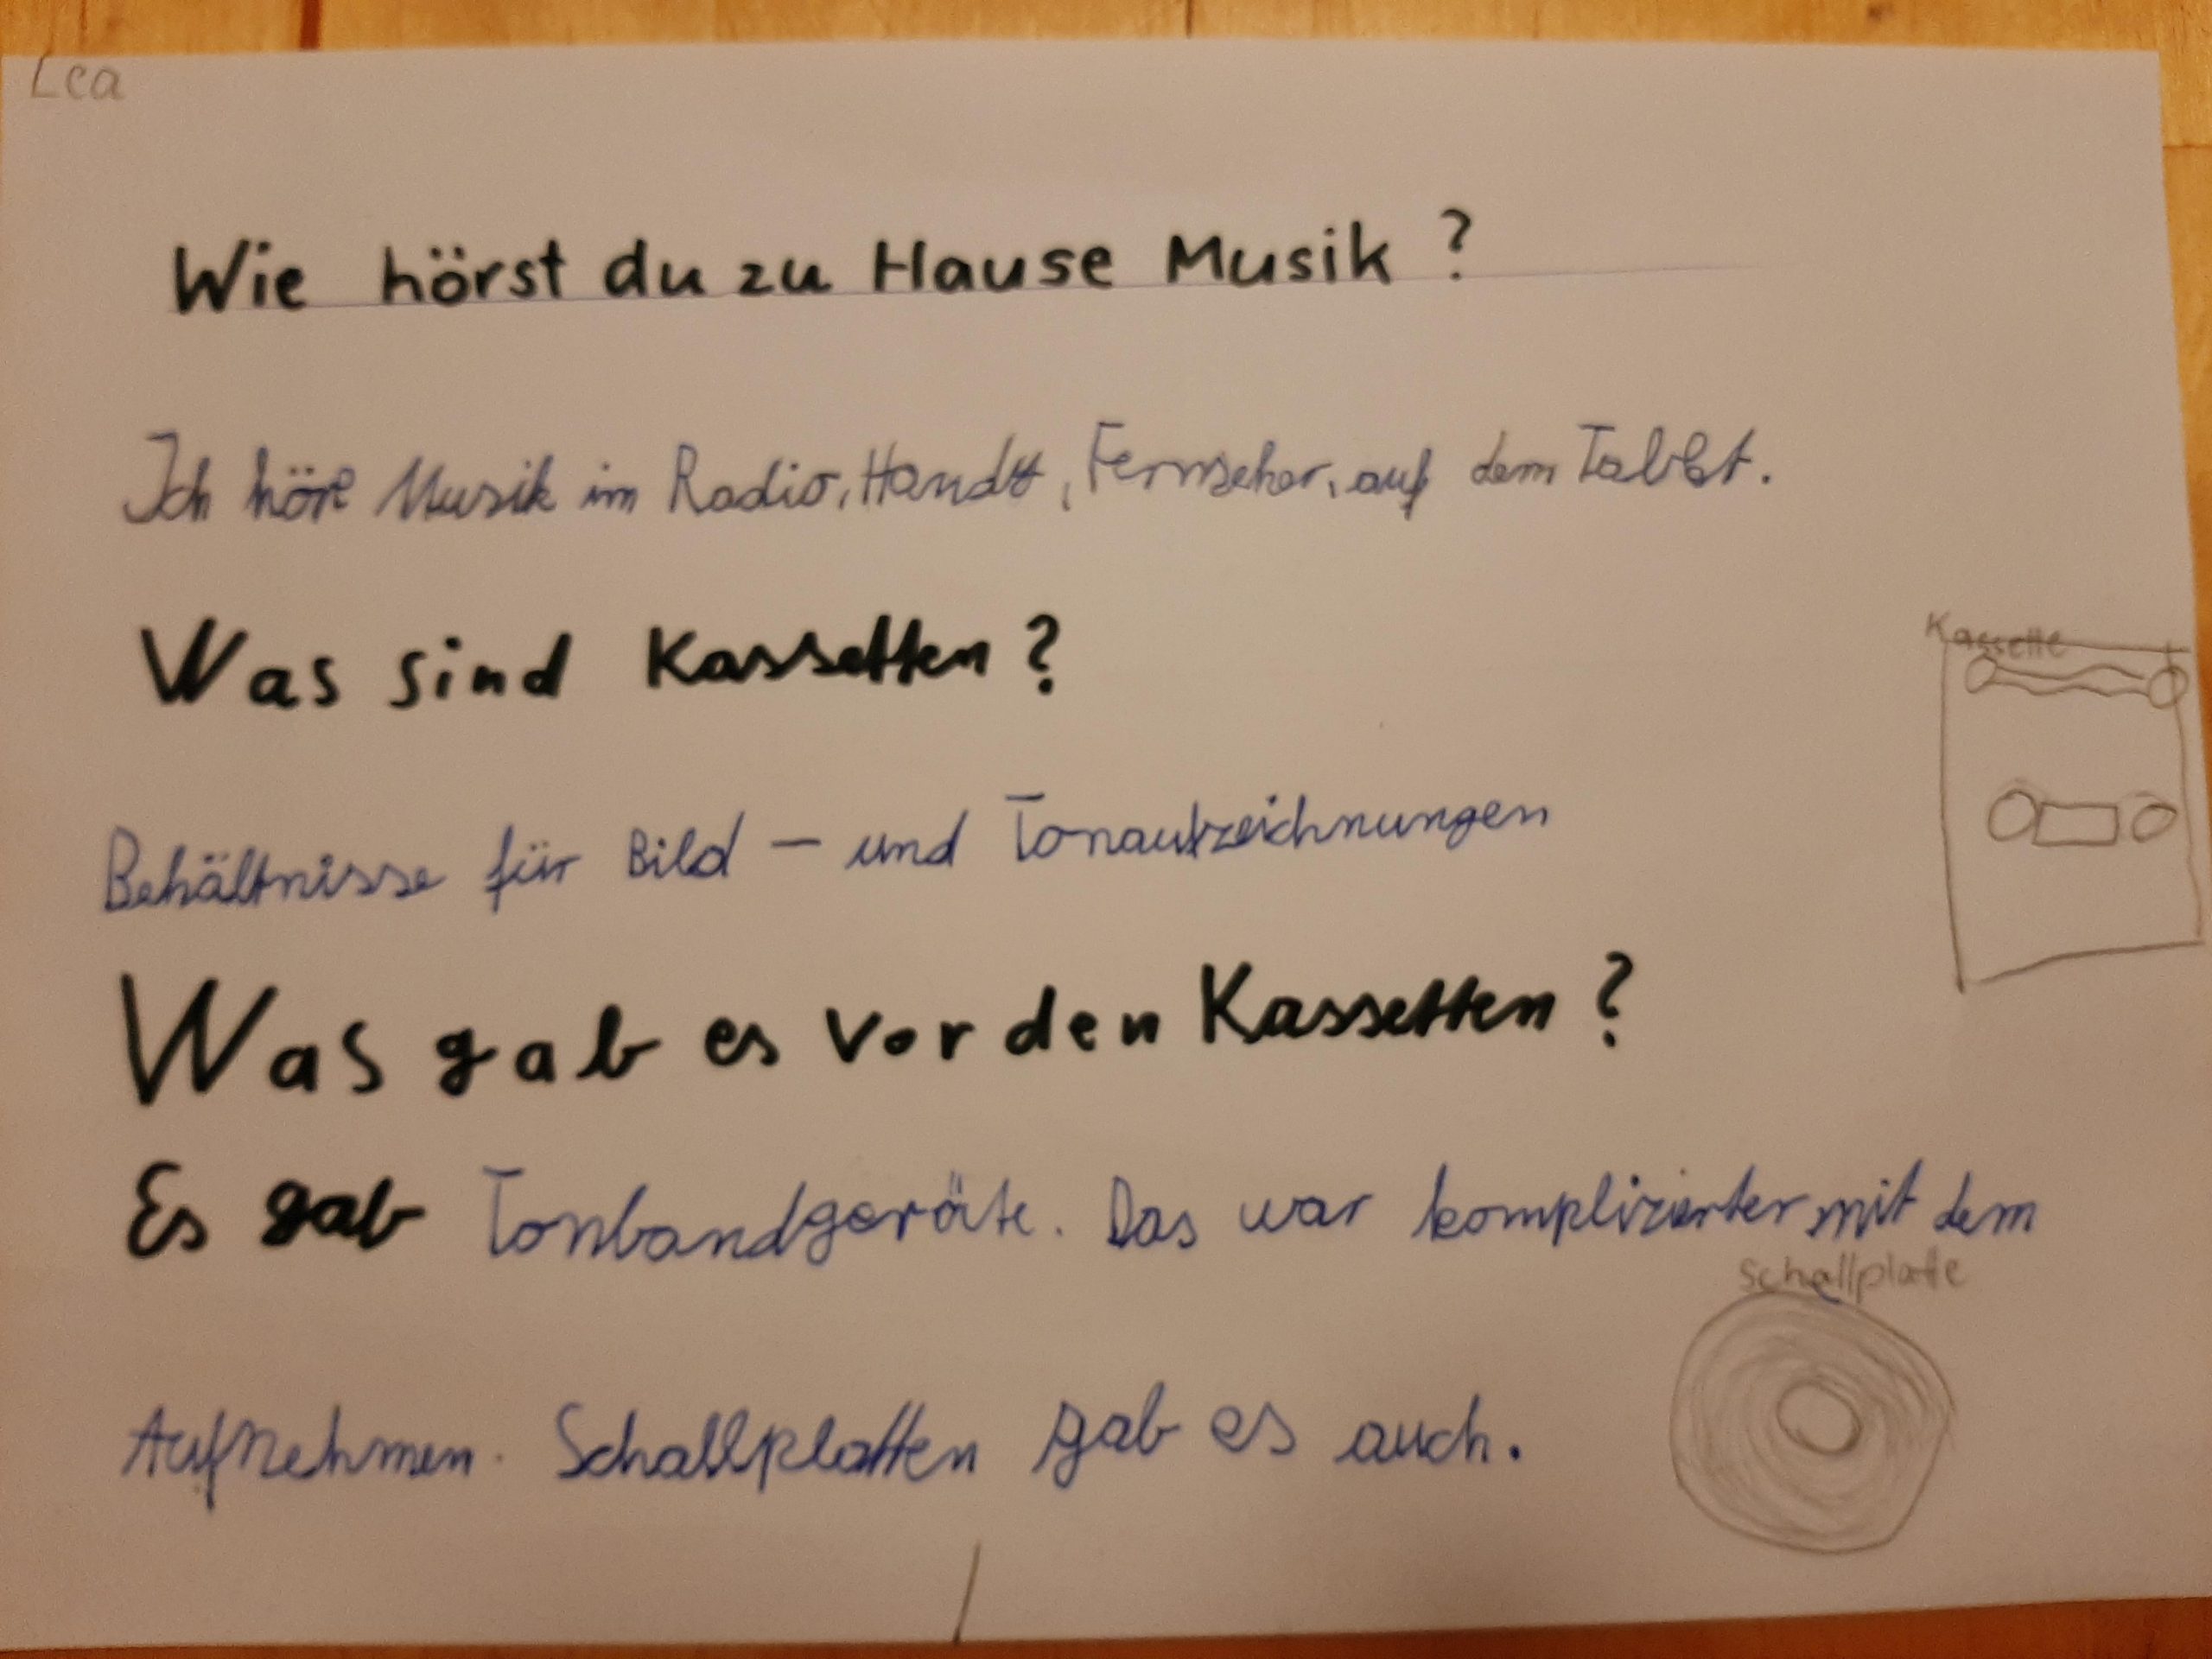 Lea
Wie hörst du zu Hause Musik?
Ich höre Musik im Radio, Handy, Fernseher, auf dem Tablet.
Was sind Kassetten?
Kassette
Behältnisse für Bild - und Tonaufzeichnungen
Was gab es vor den Kassetten?
Es gab Tonbandgeräte. Das war komplizierter mit dem
Schallplatte
Aufnehmen. Schallplatten gab es auch.